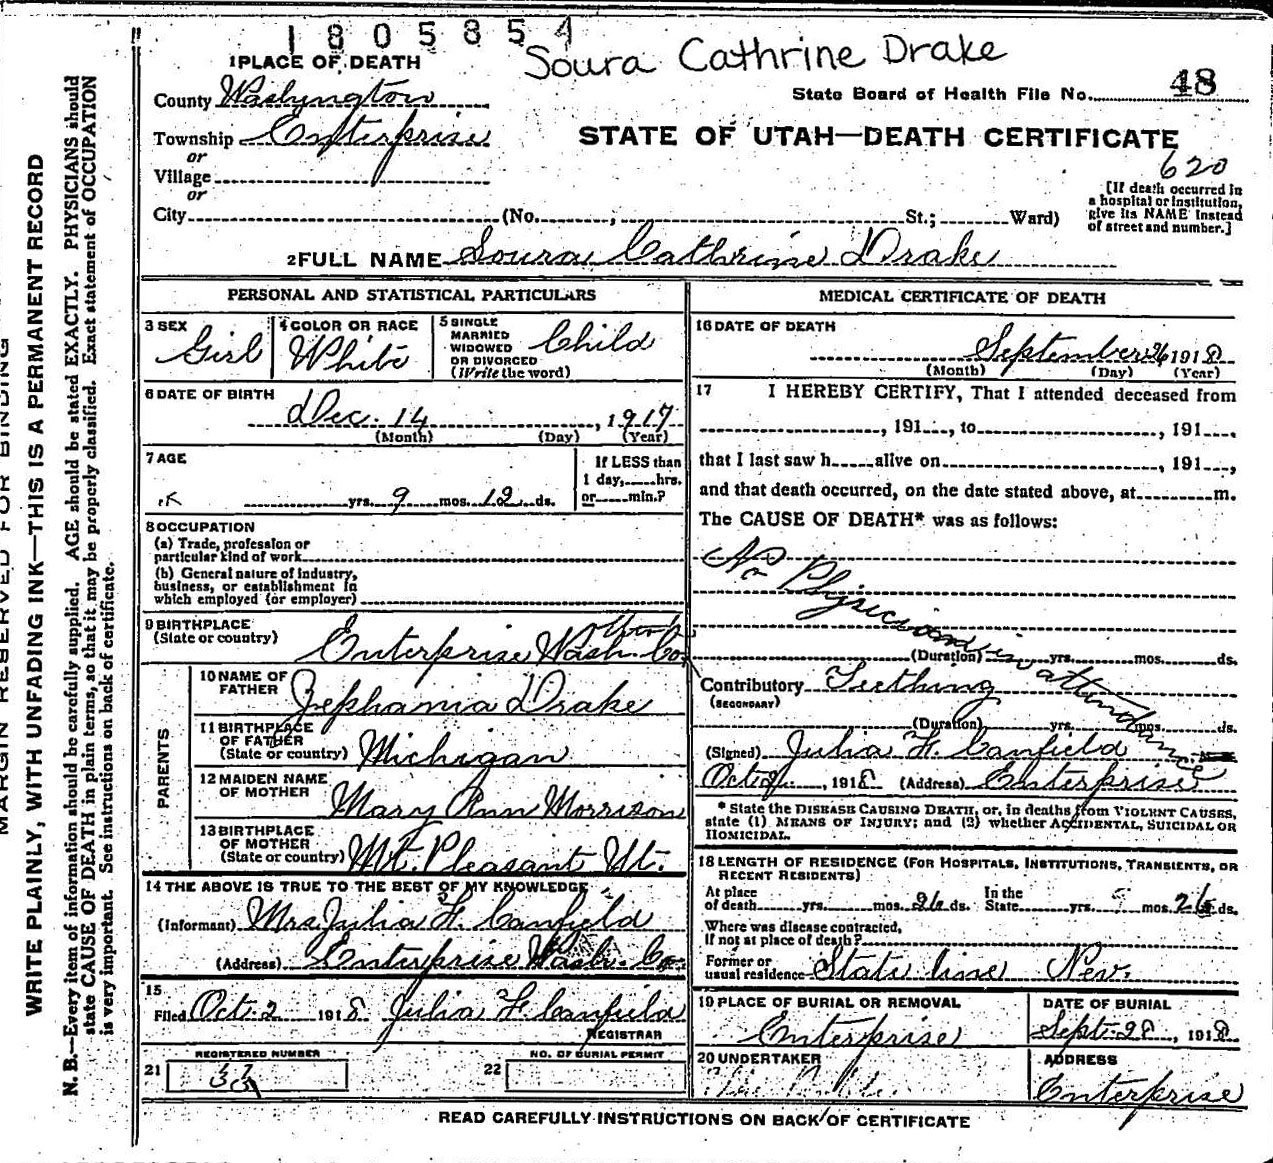 1805854
Soura Cathrine Drake
1 PLACE OF DEATH
County Washington
State Board of Health File No. 48
Township Enterprise
STATE OF UTAH—DEATH CERTIFICATE
or
620
Village
or
[If death occurred in
a hospital or institution,
give its NAME instead
of street and number.]
City (No. , St.; Ward)
2 FULL NAME Soura Cathrine Drake
PERSONAL AND STATISTICAL PARTICULARS
3 SEX Girl
4 COLOR OR RACE White
5 SINGLE
MARRIED
WIDOWED
OR DIVORCED
(Write the word)
Child
6 DATE OF BIRTH
Dec. 14, 1917
(Month) (Day) (Year)
7 AGE
yrs. 9 mos. 12 ds.
If LESS than
1 day, hrs.
or min.?
8 OCCUPATION
(a) Trade, profession or
particular kind of work
(b) General nature of industry,
business, or establishment in
which employed (or employer)
9 BIRTHPLACE
(State or country) Enterprise Wash. Co.
PARENTS
10 NAME OF
FATHER Zephania Drake
11 BIRTHPLACE
OF FATHER
(State or country) Michigan
12 MAIDEN NAME
OF MOTHER Mary Ann Morrison
13 BIRTHPLACE
OF MOTHER
(State or country) Mt. Pleasant Ut.
14 THE ABOVE IS TRUE TO THE BEST OF MY KNOWLEDGE
(Informant) Mrs. Julia F. Canfield
(Address) Enterprise Wash. Co.
15
Filed Oct. 2 1918 Julia F. Canfield
REGISTRAR
REGISTERED NUMBER
21 33
NO. OF BURIAL PERMIT
22
MEDICAL CERTIFICATE OF DEATH
16 DATE OF DEATH
September 26 1918
(Month) (Day) (Year)
17 I HEREBY CERTIFY, That I attended deceased from
, 191 , to , 191 ,
that I last saw h alive on , 191 ,
and that death occurred, on the date stated above, at m.
The CAUSE OF DEATH* was as follows:
No Physician in attendance
(Duration) yrs. mos. ds.
Contributory Teething
(SECONDARY)
(Duration) yrs. mos. ds.
(Signed) Julia F. Canfield
Oct 2, 1918 (Address) Enterprise
* State the DISEASE CAUSING DEATH, or, in deaths from VIOLENT CAUSES,
state (1) MEANS OF INJURY; and (2) whether ACCIDENTAL, SUICIDAL OR
HOMICIDAL.
18 LENGTH OF RESIDENCE (FOR HOSPITALS, INSTITUTIONS, TRANSIENTS, OR
RECENT RESIDENTS)
At place
of death yrs. mos. 26 ds.
In the
State yrs. mos. 26 ds.
Where was disease contracted,
If not at place of death?
Former or
usual residence State line Nev.
19 PLACE OF BURIAL OR REMOVAL
Enterprise
DATE OF BURIAL
Sept. 28, 1918
20 UNDERTAKER
ADDRESS
Enterprise
READ CAREFULLY INSTRUCTIONS ON BACK OF CERTIFICATE
MARGIN RESERVED FOR BINDING
WRITE PLAINLY, WITH UNFADING INK—THIS IS A PERMANENT RECORD
N. B.—Every item of information should be carefully supplied. AGE should be stated EXACTLY. PHYSICIANS should
state CAUSE OF DEATH in plain terms, so that it may be properly classified. Exact statement of OCCUPATION
is very important. See instructions on back of certificate.